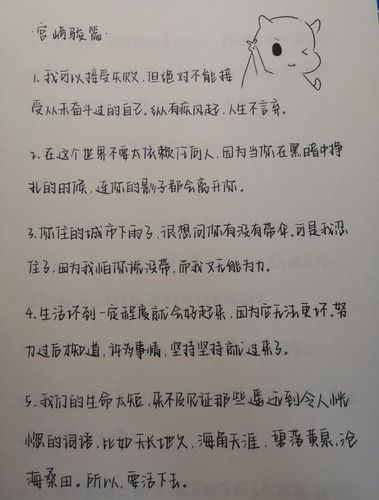 ·宫崎骏篇·
1.我可以接受失败,但绝对不能接
受从未奋斗过的自己。纵有疾风起,人生不言弃。
2.在这个世界不要太依赖任何人,因为当你在黑暗中挣
扎的时候,连你的影子都会离开你。
3.你住的城市下雨了,很想问你有没有带伞。可是我忍
住了,因为我怕你说没带,而我又无能为力。
4.生活坏到一定程度就会好起来,因为它无法更坏。努
力过后才知道,许多事情,坚持坚持就过来了。
5.我们的生命太短,来不及见证那些遥远到令人恍
惚的词语,比如天长地久,海角天涯,碧落黄泉,沧
海桑田。所以,要活下去。